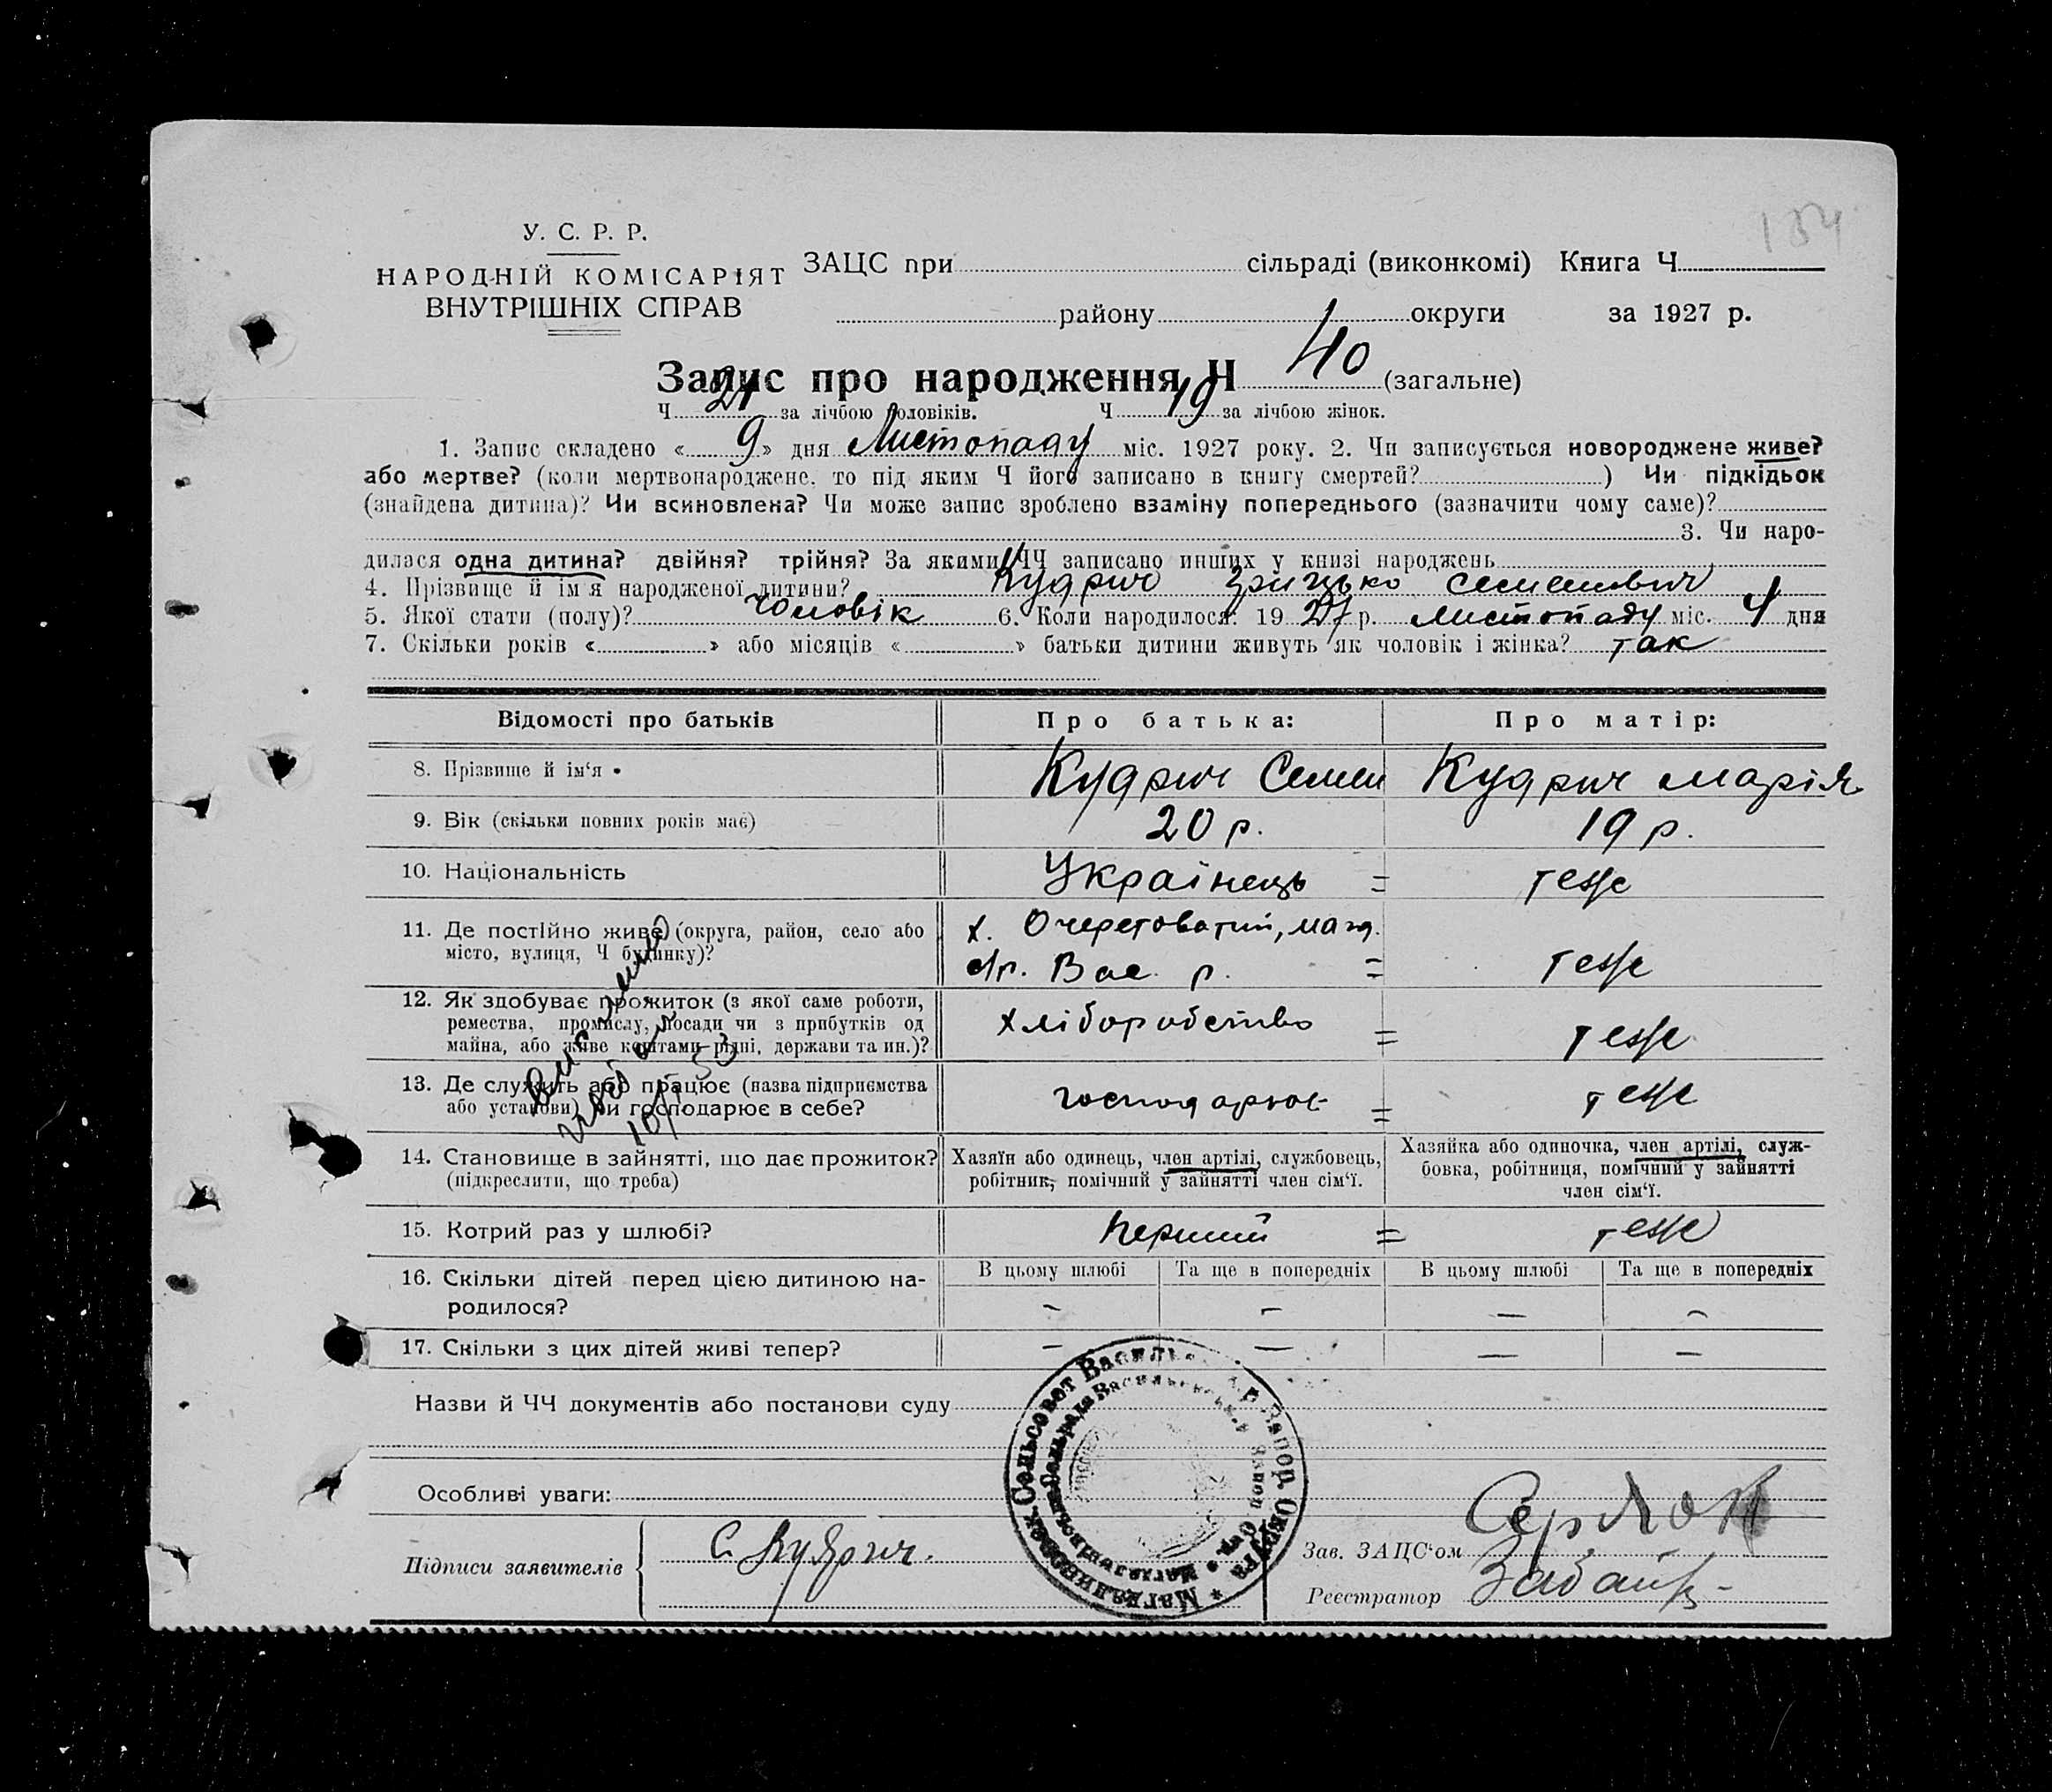 134
У. С. Р. Р.
НАРОДНІЙ КОМІСАРІЯТ
ВНУТРІШНІХ СПРАВ
ЗАЦС при сільраді (виконкомі) Книга Ч.
району округи за 1927 р.
Запис про народження Ч 40 (загальне)
Ч 21 за лічбою чоловіків. Ч 19 за лічбою жінок.
1. Запис складено « 9 » дня Листопаду міс. 1927 року. 2. Чи записується новороджене живе?
або мертве? (коли мертвонароджене, то під яким Ч його записано в книгу смертей? ) Чи підкідьок
(знайдена дитина)? Чи всиновлена? Чи може запис зроблено взаміну попереднього (зазначити чому саме)?
3. Чи наро-
дилася одна дитина? двійня? трійня? За якими ЧЧ записано инших у книзі народжень
4. Прізвище й ім'я народженої дитини? Кудрич Грицько Семенович
5. Якої стати (полу)? чоловік 6. Коли народилося: 19 27 р. листопаду міс. 4 дня
7. Скільки років « » або місяців « » батьки дитини живуть як чоловік і жінка? так
Відомості про батьків Про батька: Про матір:
8. Прізвище й ім'я Кудрич Семен Кудрич марія
9. Вік (скільки повних років має) 20 р. 19 р.
10. Національність Українець = теж
11. Де постійно живе (округа, район, село або х. Очеретоватий, маг.
місто, вулиця, Ч будинку)? Вас. р. = теж
12. Як здобуває прожиток (з якої саме роботи,
ремества, промислу, посади чи з прибутків од хліборобство = теж
майна, або живе коштами рідні, держави та ин.)?
13. Де служить або працює (назва підприємства
або установи) чи господарює в себе? господарює = теж
14. Становище в зайнятті, що дає прожиток? Хазяїн або одинець, член артілі, службовець, Хазяйка або одиночка, член артілі, служ-
(підкреслити, що треба) робітник, помічний у зайнятті член сім'ї. бовка, робітниця, помічний у зайнятті
член сім'ї.
15. Котрий раз у шлюбі? перший = теж
16. Скільки дітей перед цією дитиною на- В цьому шлюбі Та ще в попередніх В цьому шлюбі Та ще в попередніх
родилося? — — — —
17. Скільки з цих дітей живі тепер? — — — —
Назви й ЧЧ документів або постанови суду
Особливі уваги:
Підписи заявителів С. Кудрич.
Зав. ЗАЦС'ом
Реєстратор
Сельсовет Запор. Округа